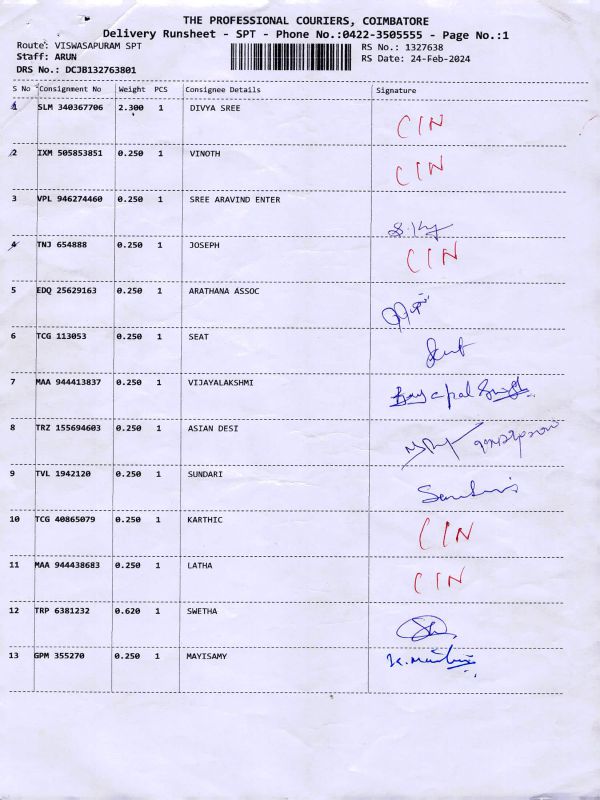 THE PROFESSIONAL COURIERS, COIMBATORE
Delivery Runsheet - SPT - Phone No.:0422-3505555 - Page No.:1
Route: VISWASAPURAM SPT RS No.: 1327638
Staff: ARUN RS Date: 24-Feb-2024
DRS No.: DCJB132763801
S No Consignment No Weight PCS Consignee Details Signature
1 SLM 340367706 2.300 1 DIVYA SREE CIN
2 IXM 505853851 0.250 1 VINOTH CIN
3 VPL 946274460 0.250 1 SREE ARAVIND ENTER
4 TNJ 654888 0.250 1 JOSEPH CIN
5 EDQ 25629163 0.250 1 ARATHANA ASSOC
6 TCG 113053 0.250 1 SEAT
7 MAA 944413837 0.250 1 VIJAYALAKSHMI
8 TRZ 155694603 0.250 1 ASIAN DESI
9 TVL 1942120 0.250 1 SUNDARI
10 TCG 40865079 0.250 1 KARTHIC CIN
11 MAA 944438683 0.250 1 LATHA CIN
12 TRP 6381232 0.620 1 SWETHA
13 GPM 355270 0.250 1 MAYISAMY